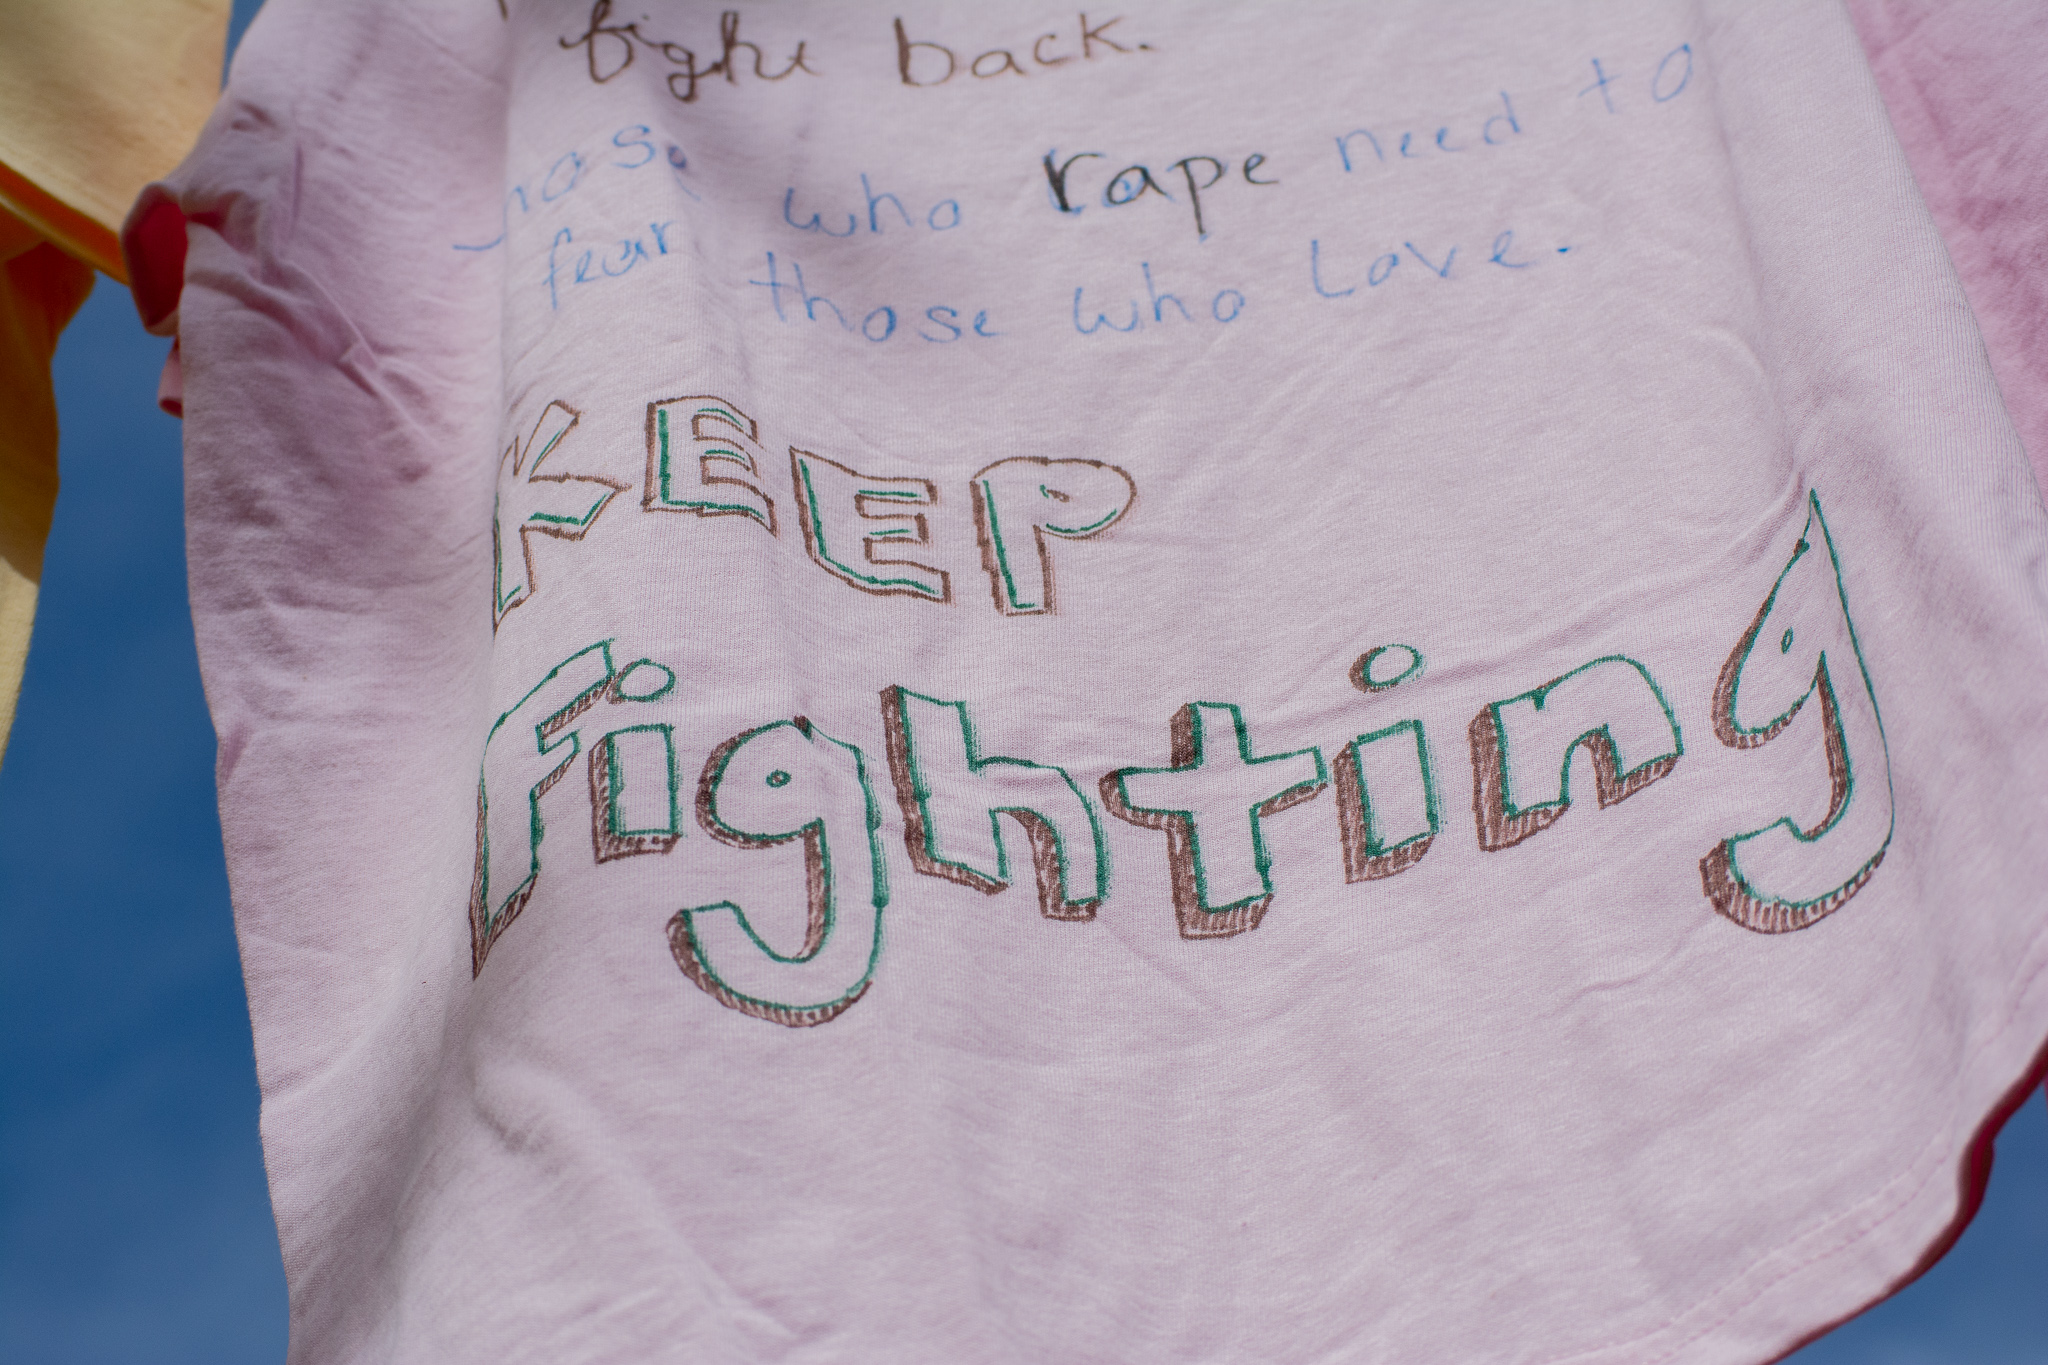 fight back.
Those who rape need to
fear those who Love.
KEEP
Fighting